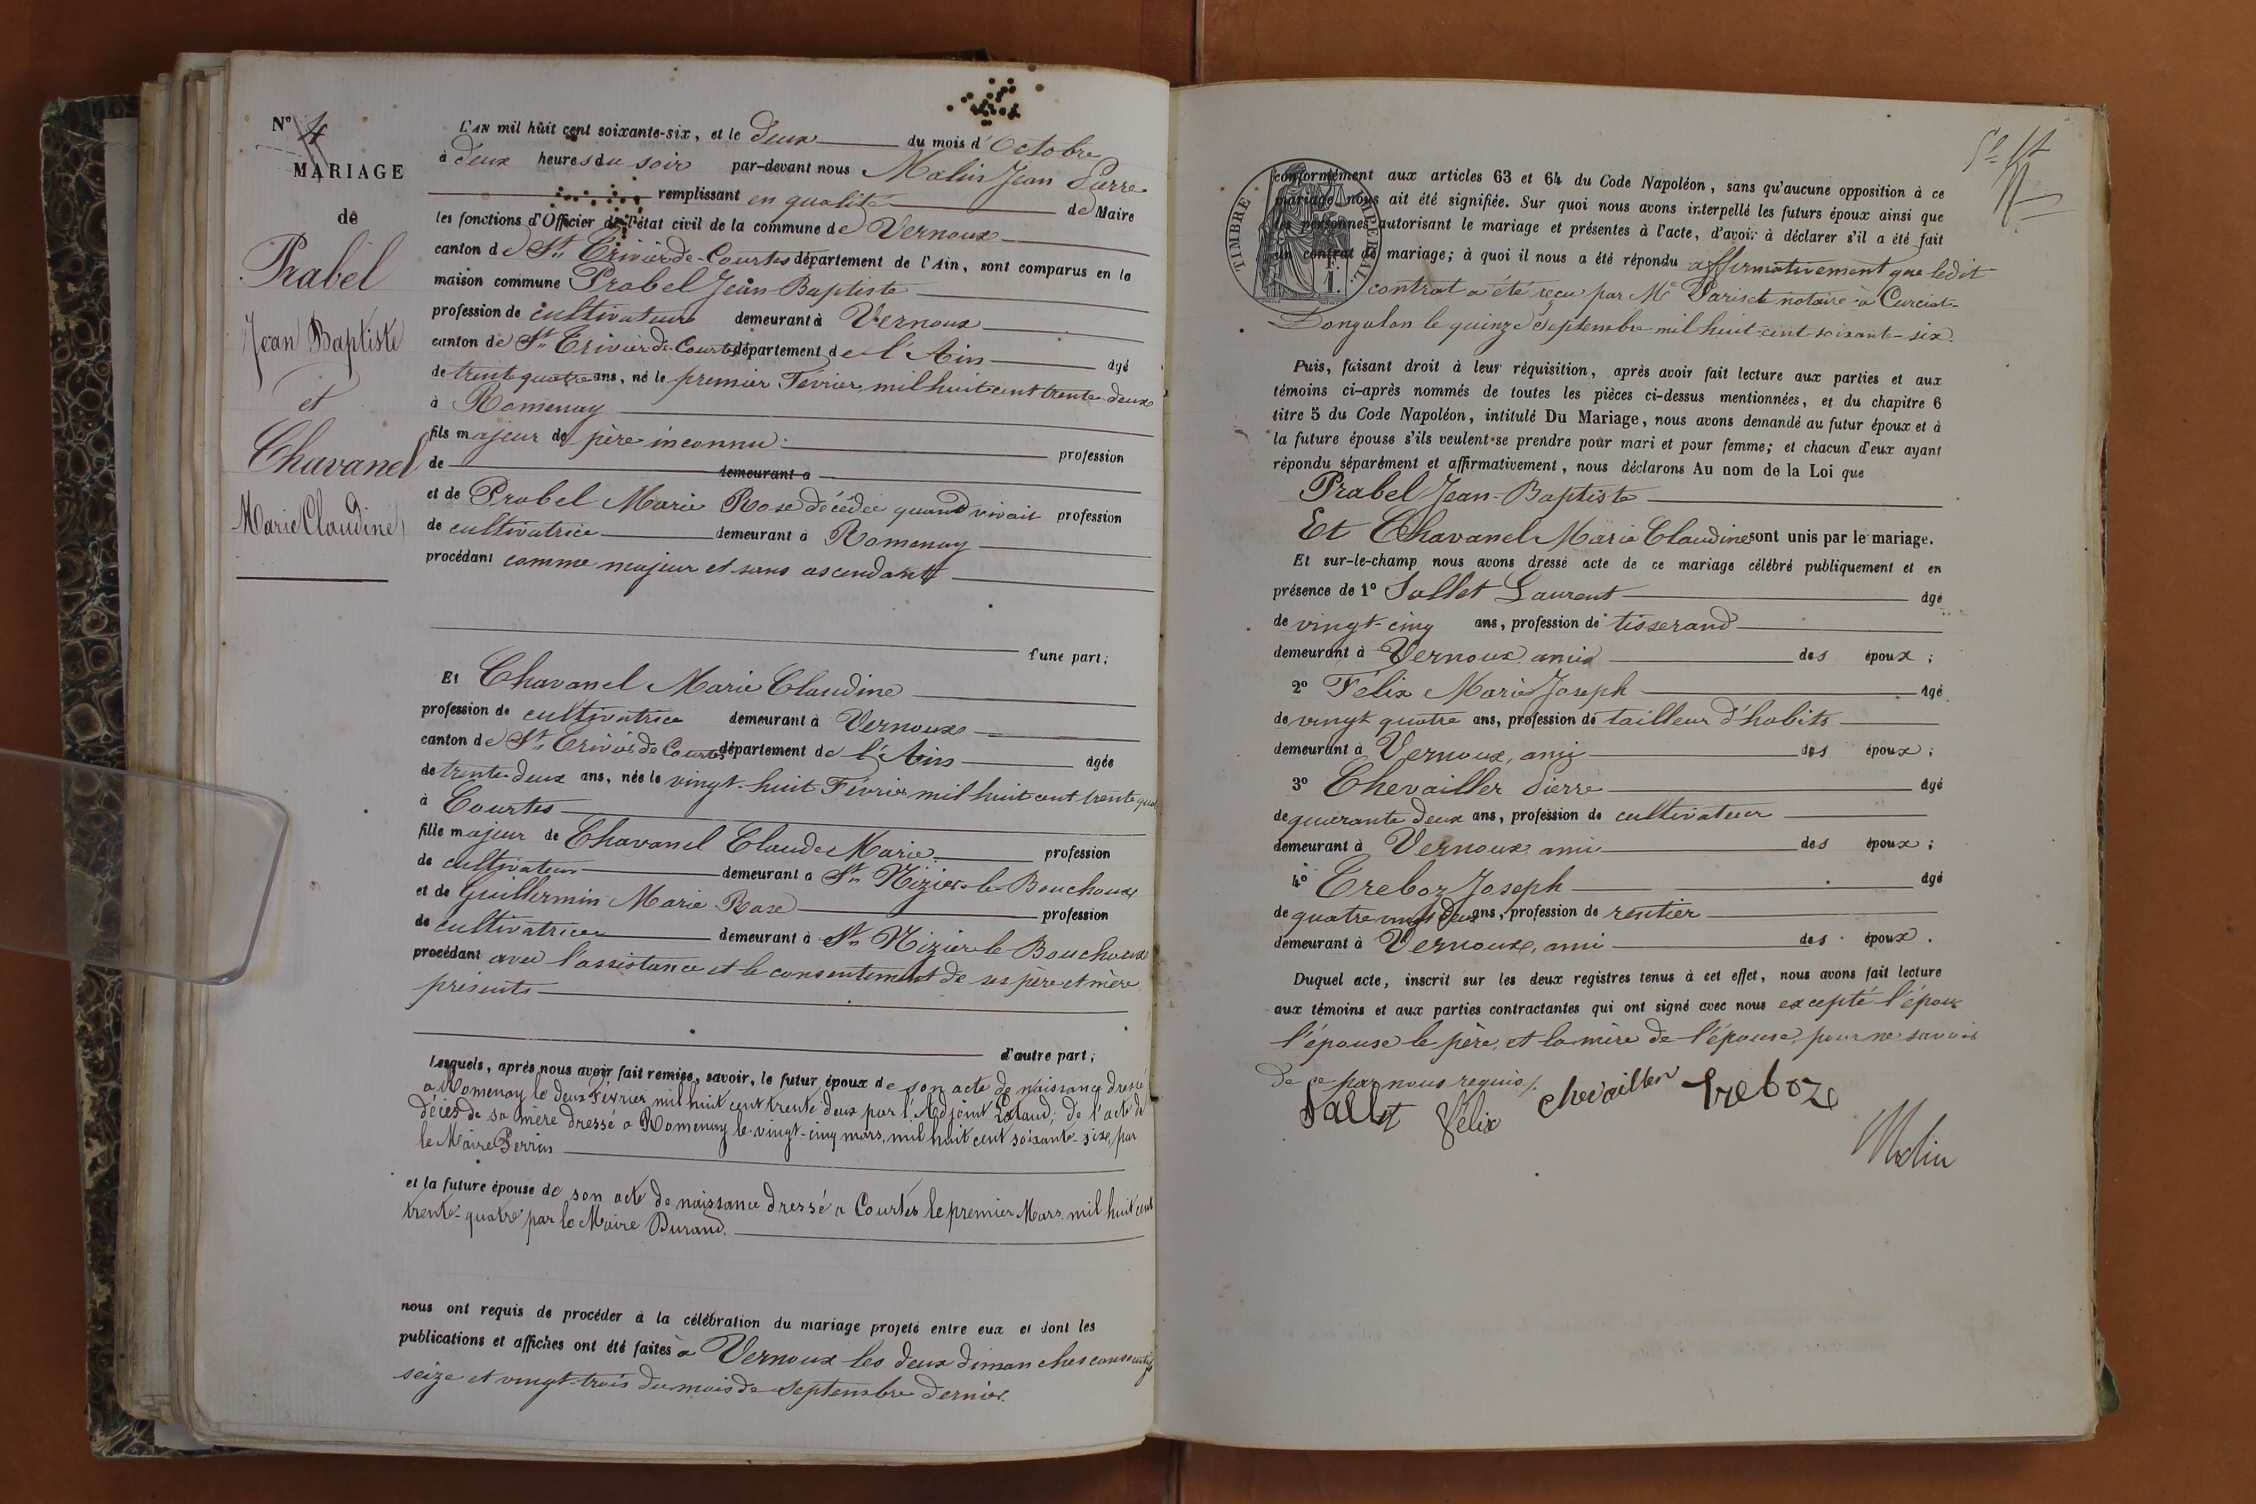 N° 4
MARIAGE
de
Prabel
Jean Baptiste
et
Chavanel
Marie Claudine
L'AN mil huit cent soixante-six, et le deux du mois d'Octobre
à deux heures du soir par-devant nous Molin Jean Pierre
remplissant en qualité de Maire
les fonctions d'Officier de l'état civil de la commune de Vernoux
canton de St Trivier-de-Courtes département de l'Ain, sont comparus en la
maison commune Prabel Jean Baptiste
profession de cultivateur demeurant à Vernoux
canton de St Trivier de Courtes département de l'Ain âgé
de trente quatre ans, né le premier Février mil huit cent trente deux
à Romenay
fils majeur de père inconnu profession
de demeurant à
et de Prabel Marie Rose décédée quand vivait profession
de cultivatrice demeurant à Romenay
procédant comme majeur et sans ascendants
d'une part;
Et Chavanel Marie Claudine
profession de cultivatrice demeurant à Vernoux
canton de St Trivier de Courtes département de l'Ain âgée
de trente deux ans, née le vingt-huit Février mil huit cent trente quatre
à Courtes
fille majeur de Chavanel Claude Marie profession
de cultivateur demeurant à St Nizier le Bouchoux
et de Guillermin Marie Rose profession
de cultivatrice demeurant à St Nizier le Bouchoux
procédant avec l'assistance et le consentement de ses père et mère
présents
d'autre part;
Lesquels, après nous avoir fait remise, savoir, le futur époux de son acte de naissance dressé
à Romenay le deux Février mil huit cent trente deux par l'Adjoint ; de l'acte de
décès de sa mère dressé à Romenay le vingt-cinq mars, mil huit cent soixante six, par
le Maire Perrin
et la future épouse de son acte de naissance dressé à Courtes le premier Mars mil huit cent
trente-quatre par le Maire Durand.
nous ont requis de procéder à la célébration du mariage projeté entre eux et dont les
publications et affiches ont été faites à Vernoux les deux dimanches consécutifs
seize et vingt-trois du mois de Septembre dernier.
TIMBRE IMPERIAL
F.
1.
conformément aux articles 63 et 64 du Code Napoléon, sans qu'aucune opposition à ce
mariage nous ait été signifiée. Sur quoi nous avons interpellé les futurs époux ainsi que
les personnes autorisant le mariage et présentes à l'acte, d'avoir à déclarer s'il a été fait
un contrat de mariage; à quoi il nous a été répondu affirmativement que ledit
contrat a été reçu par Me Pariset notaire à Curciat-
Dongalon le quinze Septembre mil huit-cent-soixante-six.
Puis, faisant droit à leur réquisition, après avoir fait lecture aux parties et aux
témoins ci-après nommés de toutes les pièces ci-dessus mentionnées, et du chapitre 6
titre 5 du Code Napoléon, intitulé Du Mariage, nous avons demandé au futur époux et à
la future épouse s'ils veulent se prendre pour mari et pour femme; et chacun d'eux ayant
répondu séparément et affirmativement, nous déclarons Au nom de la Loi que
Prabel Jean-Baptiste
Et Chavanel Marie Claudine sont unis par le mariage.
Et sur-le-champ nous avons dressé acte de ce mariage célébré publiquement et en
présence de 1° Sallet Laurent âgé
de vingt-cinq ans, profession de tisserand
demeurant à Vernoux ami des époux;
2° Félix Marie Joseph âgé
de vingt quatre ans, profession de tailleur d'habits
demeurant à Vernoux, ami des époux;
3° Chevailler Pierre âgé
de quarante deux ans, profession de cultivateur
demeurant à Vernoux ami des époux;
4° Treboz Joseph âgé
de quatre vingt deux ans, profession de rentier
demeurant à Vernoux, ami des époux.
Duquel acte, inscrit sur les deux registres tenus à cet effet, nous avons fait lecture
aux témoins et aux parties contractantes qui ont signé avec nous excepté l'époux
l'épouse le père, et la mère de l'épouse, pour ne savoir
de ce par nous requis.
Sallet Félix chevailler treboz
Molin